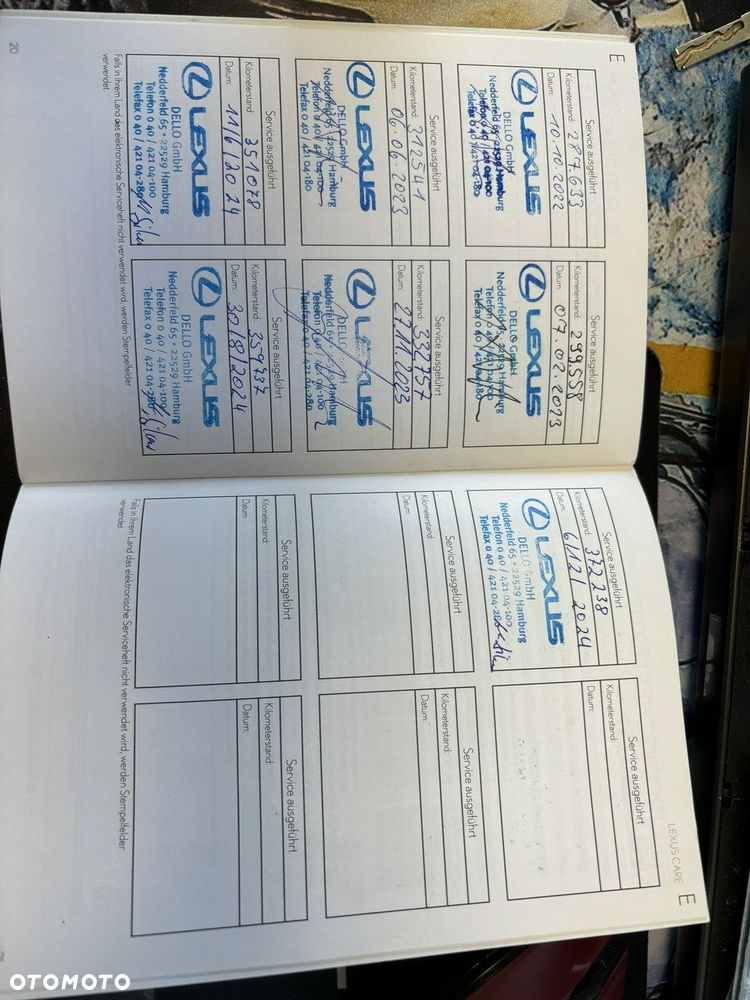 E
Service ausgeführt
Kilometerstand: 287.633
Datum: 10.10.2022
LEXUS
DELLO GmbH
Nedderfeld 65 • 22529 Hamburg
Telefon 0 40 / 421 04-100
Telefax 0 40 / 421 04-180
Service ausgeführt
Kilometerstand: 299.558
Datum: 07.02.2023
LEXUS
DELLO GmbH
Nedderfeld 65 • 22529 Hamburg
Telefon 0 40 / 421 04-100
Telefax 0 40 / 421 04-180
Service ausgeführt
Kilometerstand: 312541
Datum: 06.06.2023
LEXUS
DELLO GmbH
Nedderfeld 65 • 22529 Hamburg
Telefon 0 40 / 421 04-100
Telefax 0 40 / 421 04-180
Service ausgeführt
Kilometerstand: 332757
Datum: 27.11.2023
LEXUS
DELLO GmbH
Nedderfeld 65 • 22529 Hamburg
Telefon 0 40 / 421 04-100
Telefax 0 40 / 421 04-280
Service ausgeführt
Kilometerstand: 351078
Datum: 11/6/2024
LEXUS
DELLO GmbH
Nedderfeld 65 • 22529 Hamburg
Telefon 0 40 / 421 04-100
Telefax 0 40 / 421 04-280
Service ausgeführt
Kilometerstand: 359737
Datum: 30/8/2024
LEXUS
DELLO GmbH
Nedderfeld 65 • 22529 Hamburg
Telefon 0 40 / 421 04-100
Telefax 0 40 / 421 04-280
Falls in Ihrem Land das elektronische Serviceheft nicht verwendet wird, werden Stempelfelder
verwendet.
20
LEXUS CARE E
Service ausgeführt
Kilometerstand: 372238
Datum: 6/12/2024
LEXUS
DELLO GmbH
Nedderfeld 65 • 22529 Hamburg
Telefon 0 40 / 421 04-100
Telefax 0 40 / 421 04-280
Service ausgeführt
Kilometerstand:
Datum:
Service ausgeführt
Kilometerstand:
Datum:
Service ausgeführt
Kilometerstand:
Datum:
Service ausgeführt
Kilometerstand:
Datum:
Service ausgeführt
Kilometerstand:
Datum:
Falls in Ihrem Land das elektronische Serviceheft nicht verwendet wird, werden Stempelfelder
verwendet.
OTOMOTO